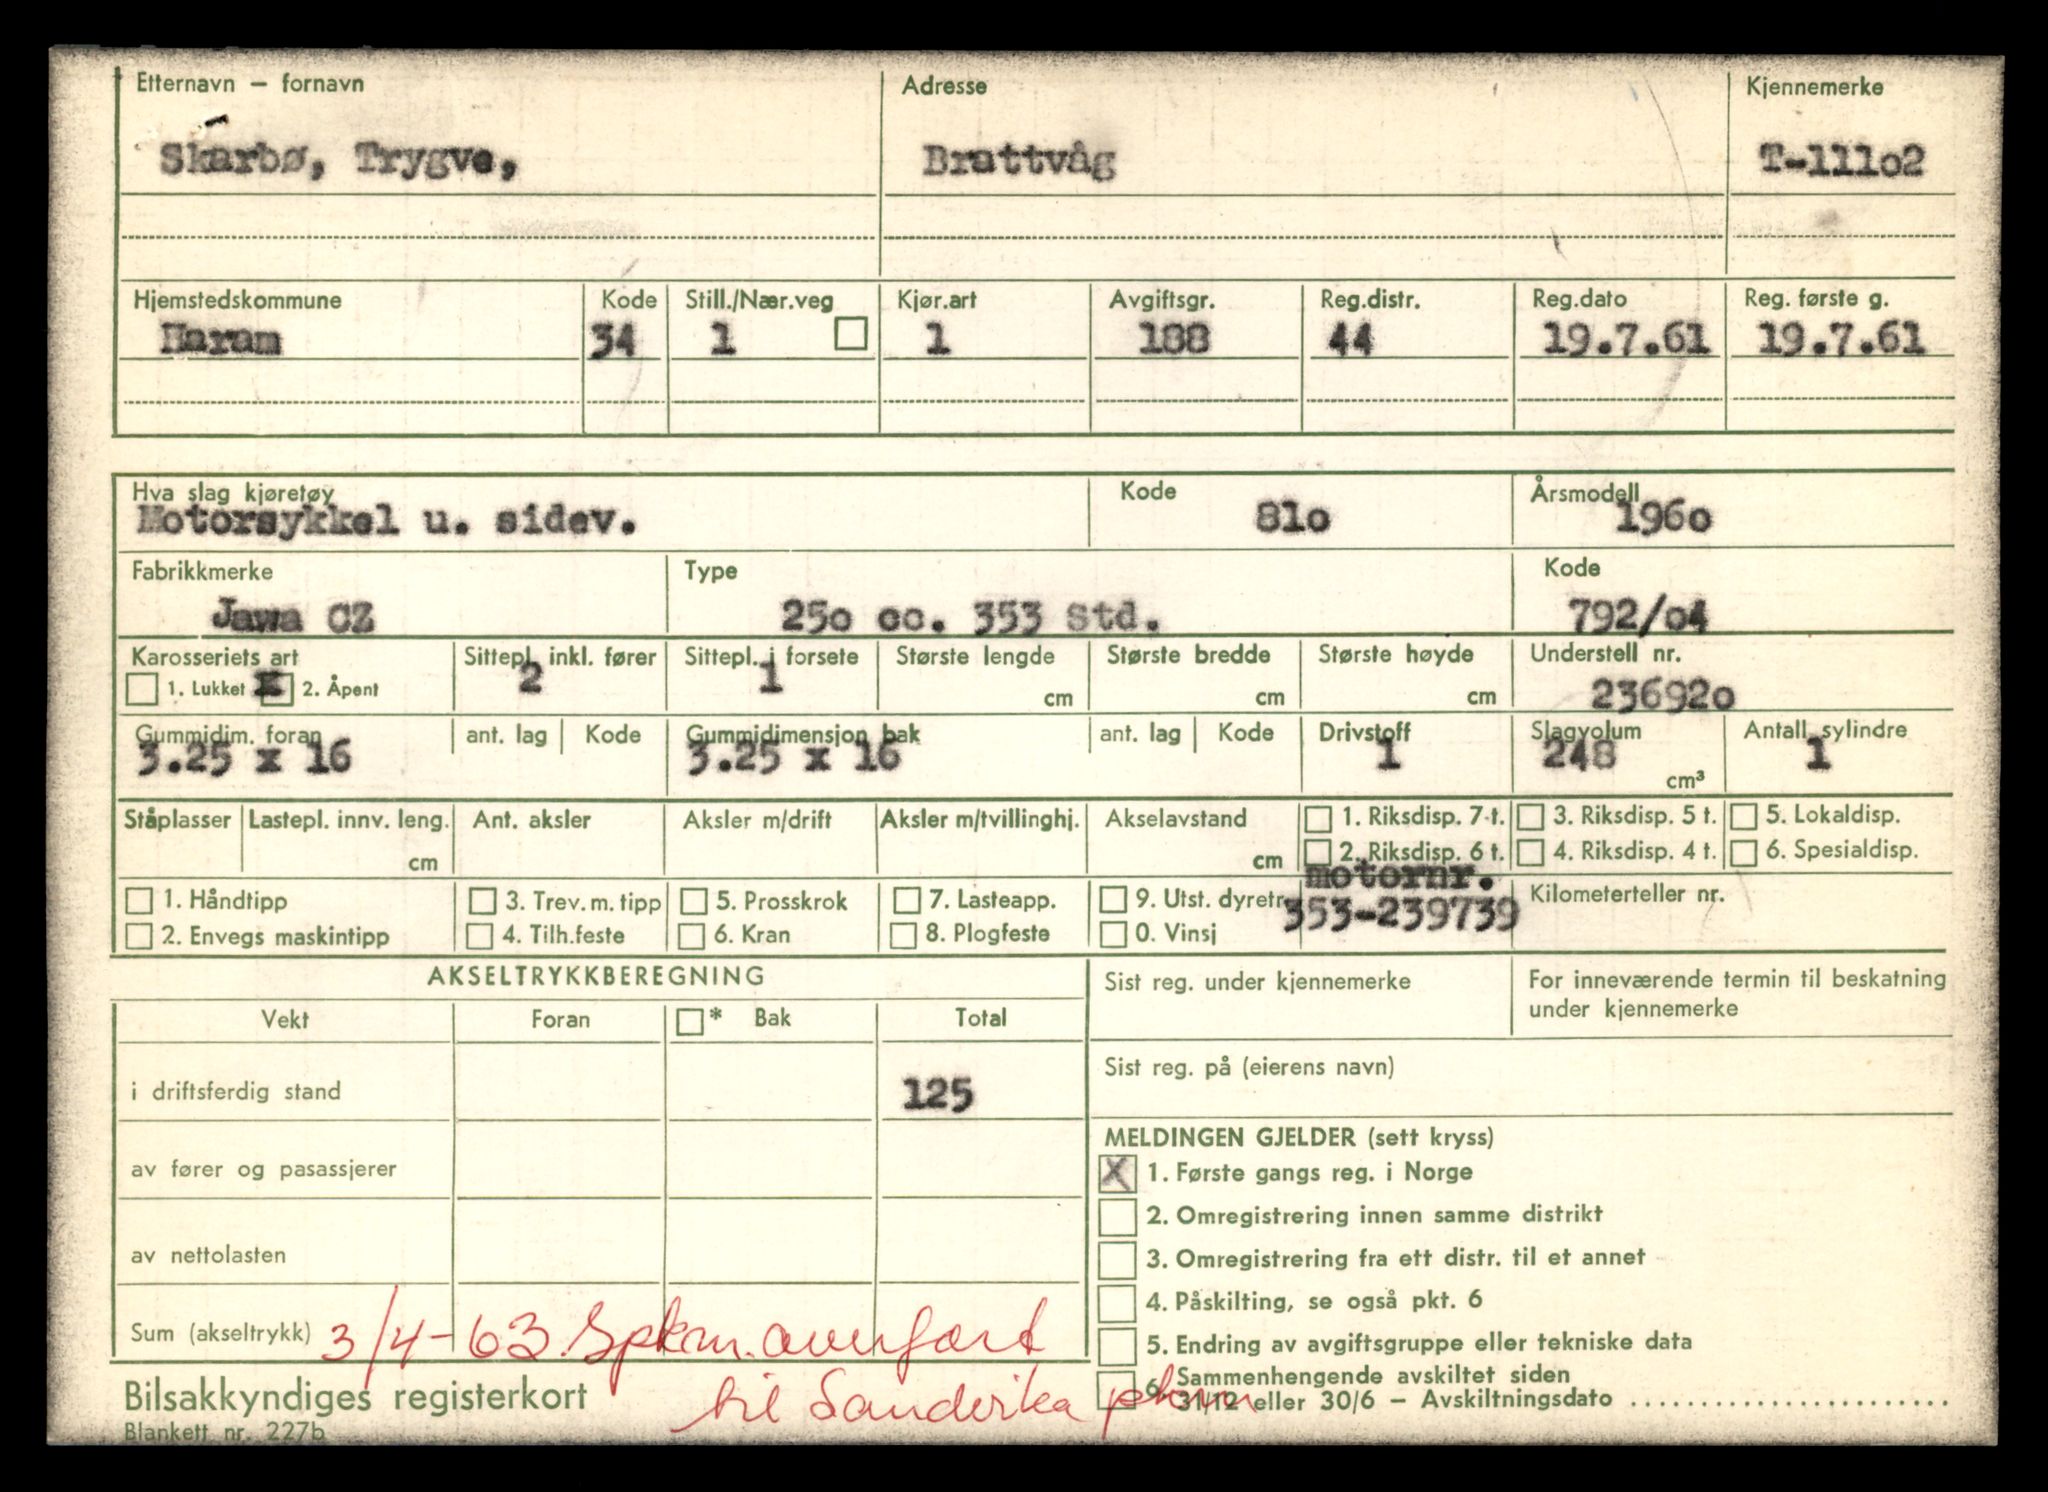 Etternavn – fornavn Adresse Kjennemerke
Skarbø, Trygve, Brattvåg T-111o2
Hjemstedskommune Kode Still./Nær.veg Kjør.art Avgiftsgr. Reg.distr. Reg.dato Reg. første g.
Haram 34 1 1 188 44 19.7.61 19.7.61
Hva slag kjøretøy Kode Årsmodell
Motorsykkel u. sidev. 81o 196o
Fabrikkmerke Type Kode
Jawa CZ 25o cc. 353 Std. 792/o4
Karosseriets art Sittepl. inkl. fører Sittepl. i forsete Største lengde Største bredde Største høyde Understell nr.
1. Lukket x 2. Åpent 2 1 cm cm cm 23692o
Gummidim. foran ant. lag Kode Gummidimensjon bak ant. lag Kode Drivstoff Slagvolum Antall sylindre
3.25 x 16 3.25 x 16 1 248 cm³ 1
Ståplasser Lastepl. innv. leng. Ant. aksler Aksler m/drift Aksler m/tvillinghj. Akselavstand 1. Riksdisp. 7 t. 3. Riksdisp. 5 t. 5. Lokaldisp.
cm cm 2. Riksdisp. 6 t. 4. Riksdisp. 4 t. 6. Spesialdisp.
motornr.
1. Håndtipp 3. Trev. m. tipp 5. Prosskrok 7. Lasteapp. 9. Utst. dyretr. 353-239739 Kilometerteller nr.
2. Envegs maskintipp 4. Tilh.feste 6. Kran 8. Plogfeste 0. Vinsj
AKSELTRYKKBEREGNING Sist reg. under kjennemerke For inneværende termin til beskatning
under kjennemerke
Vekt Foran * Bak Total
Sist reg. på (eierens navn)
i driftsferdig stand 125
MELDINGEN GJELDER (sett kryss)
av fører og pasassjerer X 1. Første gangs reg. i Norge
2. Omregistrering innen samme distrikt
av nettolasten 3. Omregistrering fra ett distr. til et annet
4. Påskilting, se også pkt. 6
Sum (akseltrykk) 3/4-63. Spkm. overført 5. Endring av avgiftsgruppe eller tekniske data
6. Sammenhengende avskiltet siden
Bilsakkyndiges registerkort til Sanderika 31/12 eller 30/6 – Avskiltningsdato
Blankett nr. 227b